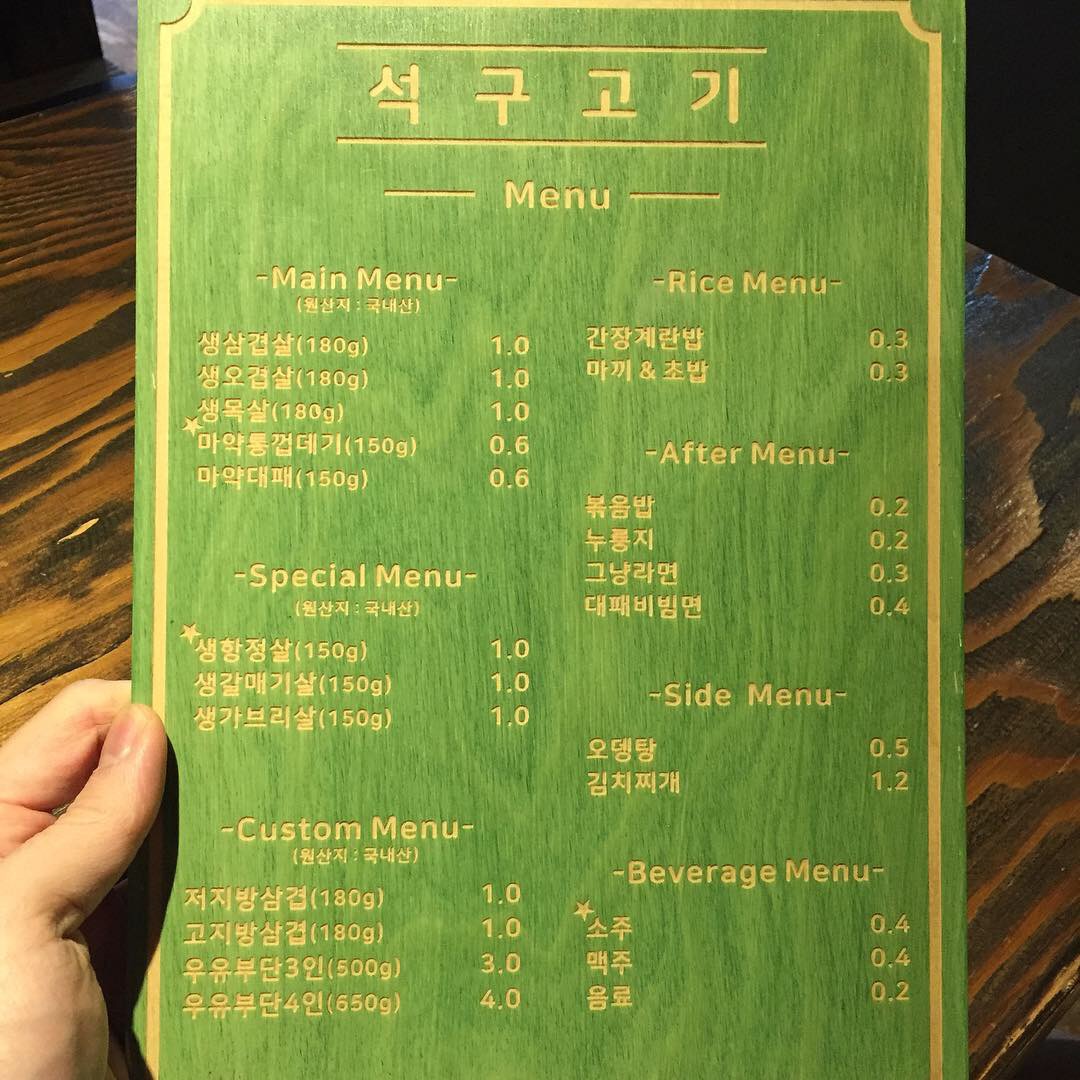 석구고기
Menu
-Main Menu-
(원산지 : 국내산)
생삼겹살(180g) 1.0
생오겹살(180g) 1.0
생목살(180g) 1.0
마약통껍데기(150g) 0.6
마약대패(150g) 0.6
-Special Menu-
(원산지 : 국내산)
생항정살(150g) 1.0
생갈매기살(150g) 1.0
생가브리살(150g) 1.0
-Custom Menu-
(원산지 : 국내산)
저지방삼겹(180g) 1.0
고지방삼겹(180g) 1.0
우유부단3인(500g) 3.0
우유부단4인(650g) 4.0
-Rice Menu-
간장계란밥 0.3
마끼 & 초밥 0.3
-After Menu-
볶음밥 0.2
누룽지 0.2
그냥라면 0.3
대패비빔면 0.4
-Side Menu-
오뎅탕 0.5
김치찌개 1.2
-Beverage Menu-
소주 0.4
맥주 0.4
음료 0.2